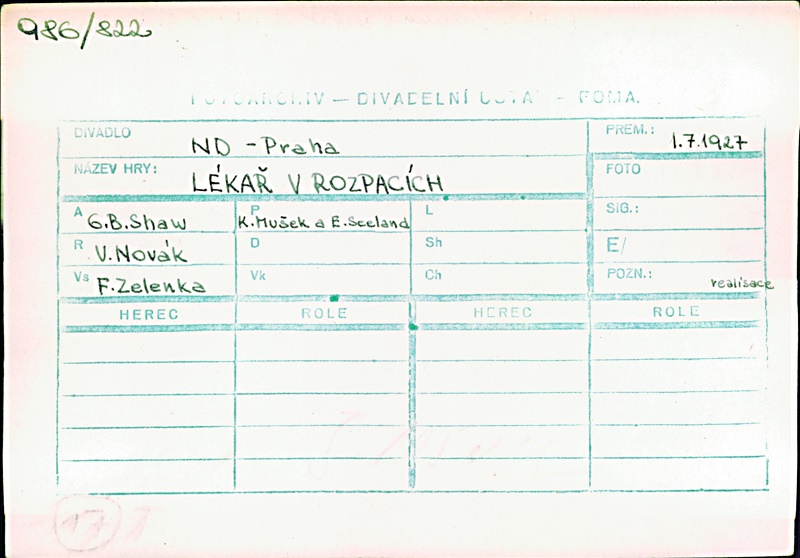 986/822
FOTOARCHIV — DIVADELNÍ ÚSTAV - FOMA.
DIVADLO ND - Praha PREM.: 1.7.1927
NÁZEV HRY: LÉKAŘ V ROZPACÍCH FOTO
A G.B.Shaw P K.Mušek a E.Seeland L SIG.:
R V.Novák D Sh E/
Vs F.Zelenka Vk Ch POZN.: realisace
HEREC ROLE HEREC ROLE
17